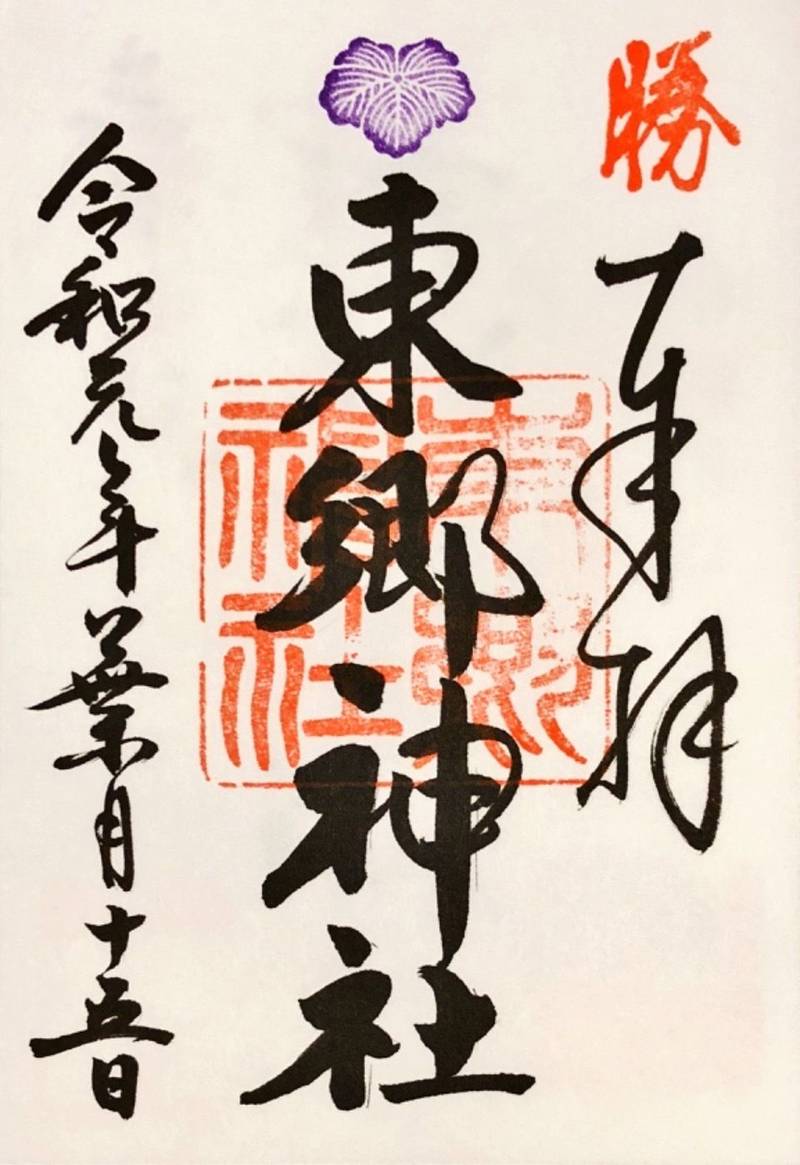 勝
奉拝
東郷神社
東郷
神社
令和元年葉月十五日